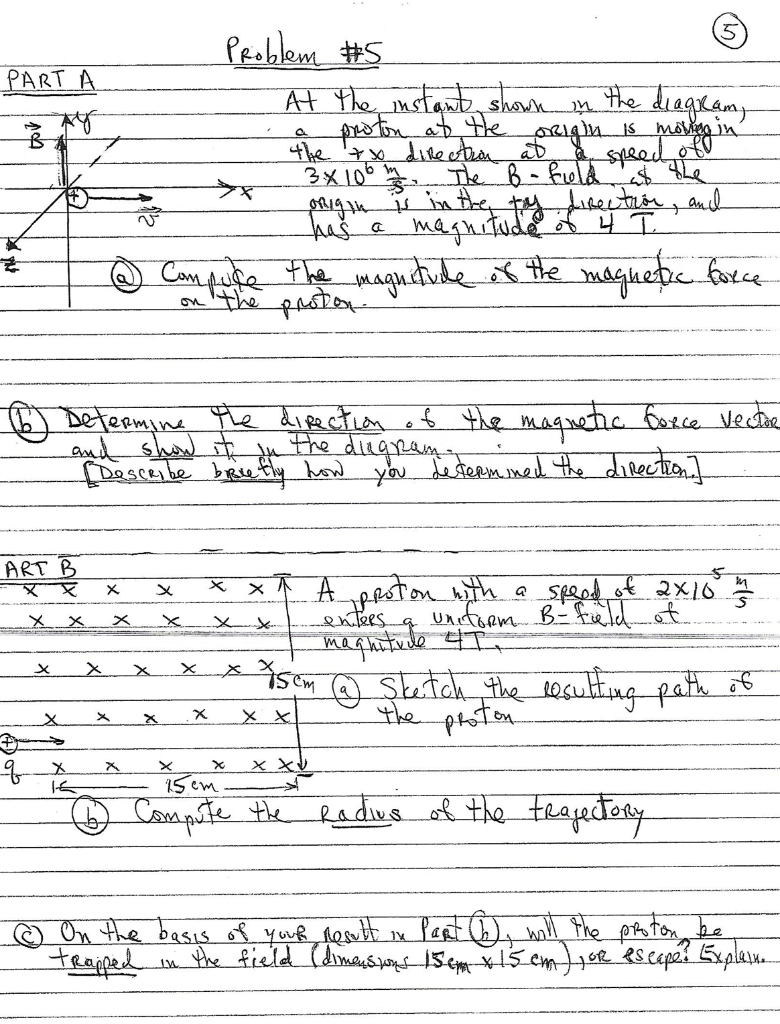 5
Problem #5
PART A
At the instant shown in the diagram,
a proton at the origin is moving in
the +x direction at a speed of
3×10⁶ m/s. The B-field at the
origin is in the +y direction, and
has a magnitude of 4 T.
B y
+ x
v
z
(a) Compute the magnitude of the magnetic force
on the proton.
(b) Determine the direction of the magnetic force vector
and show it in the diagram.
[Describe briefly how you determined the direction.]
ART B
x x x x x x
A proton with a speed of 2×10⁵ m/s
x x x x x x
enters a uniform B-field of
magnitude 4T.
x x x x x x
15cm
(a) Sketch the resulting path of
the proton
x x x x x x
+
q x x x x x x
15cm
(b) Compute the radius of the trajectory
(c) On the basis of your result in Part (b), will the proton be
trapped in the field (dimensions 15cm x 15cm), or escape? Explain.